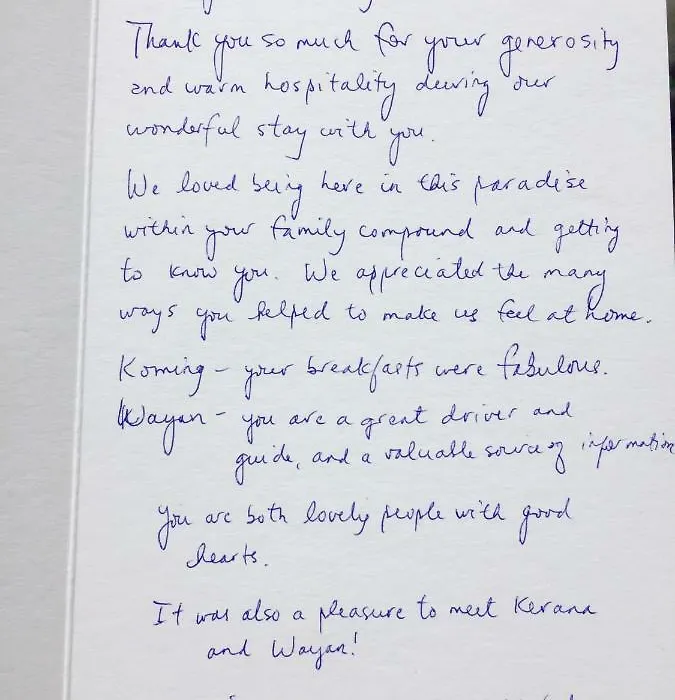 Thank you so much for your generosity
and warm hospitality during our
wonderful stay with you.
We loved being here in this paradise
within your family compound and getting
to know you. We appreciated the many
ways you helped to make us feel at home.
Koming – your breakfasts were fabulous.
Wayan – you are a great driver and
guide, and a valuable source of information
You are both lovely people with good
hearts.
It was also a pleasure to meet Kerana
and Wayan!